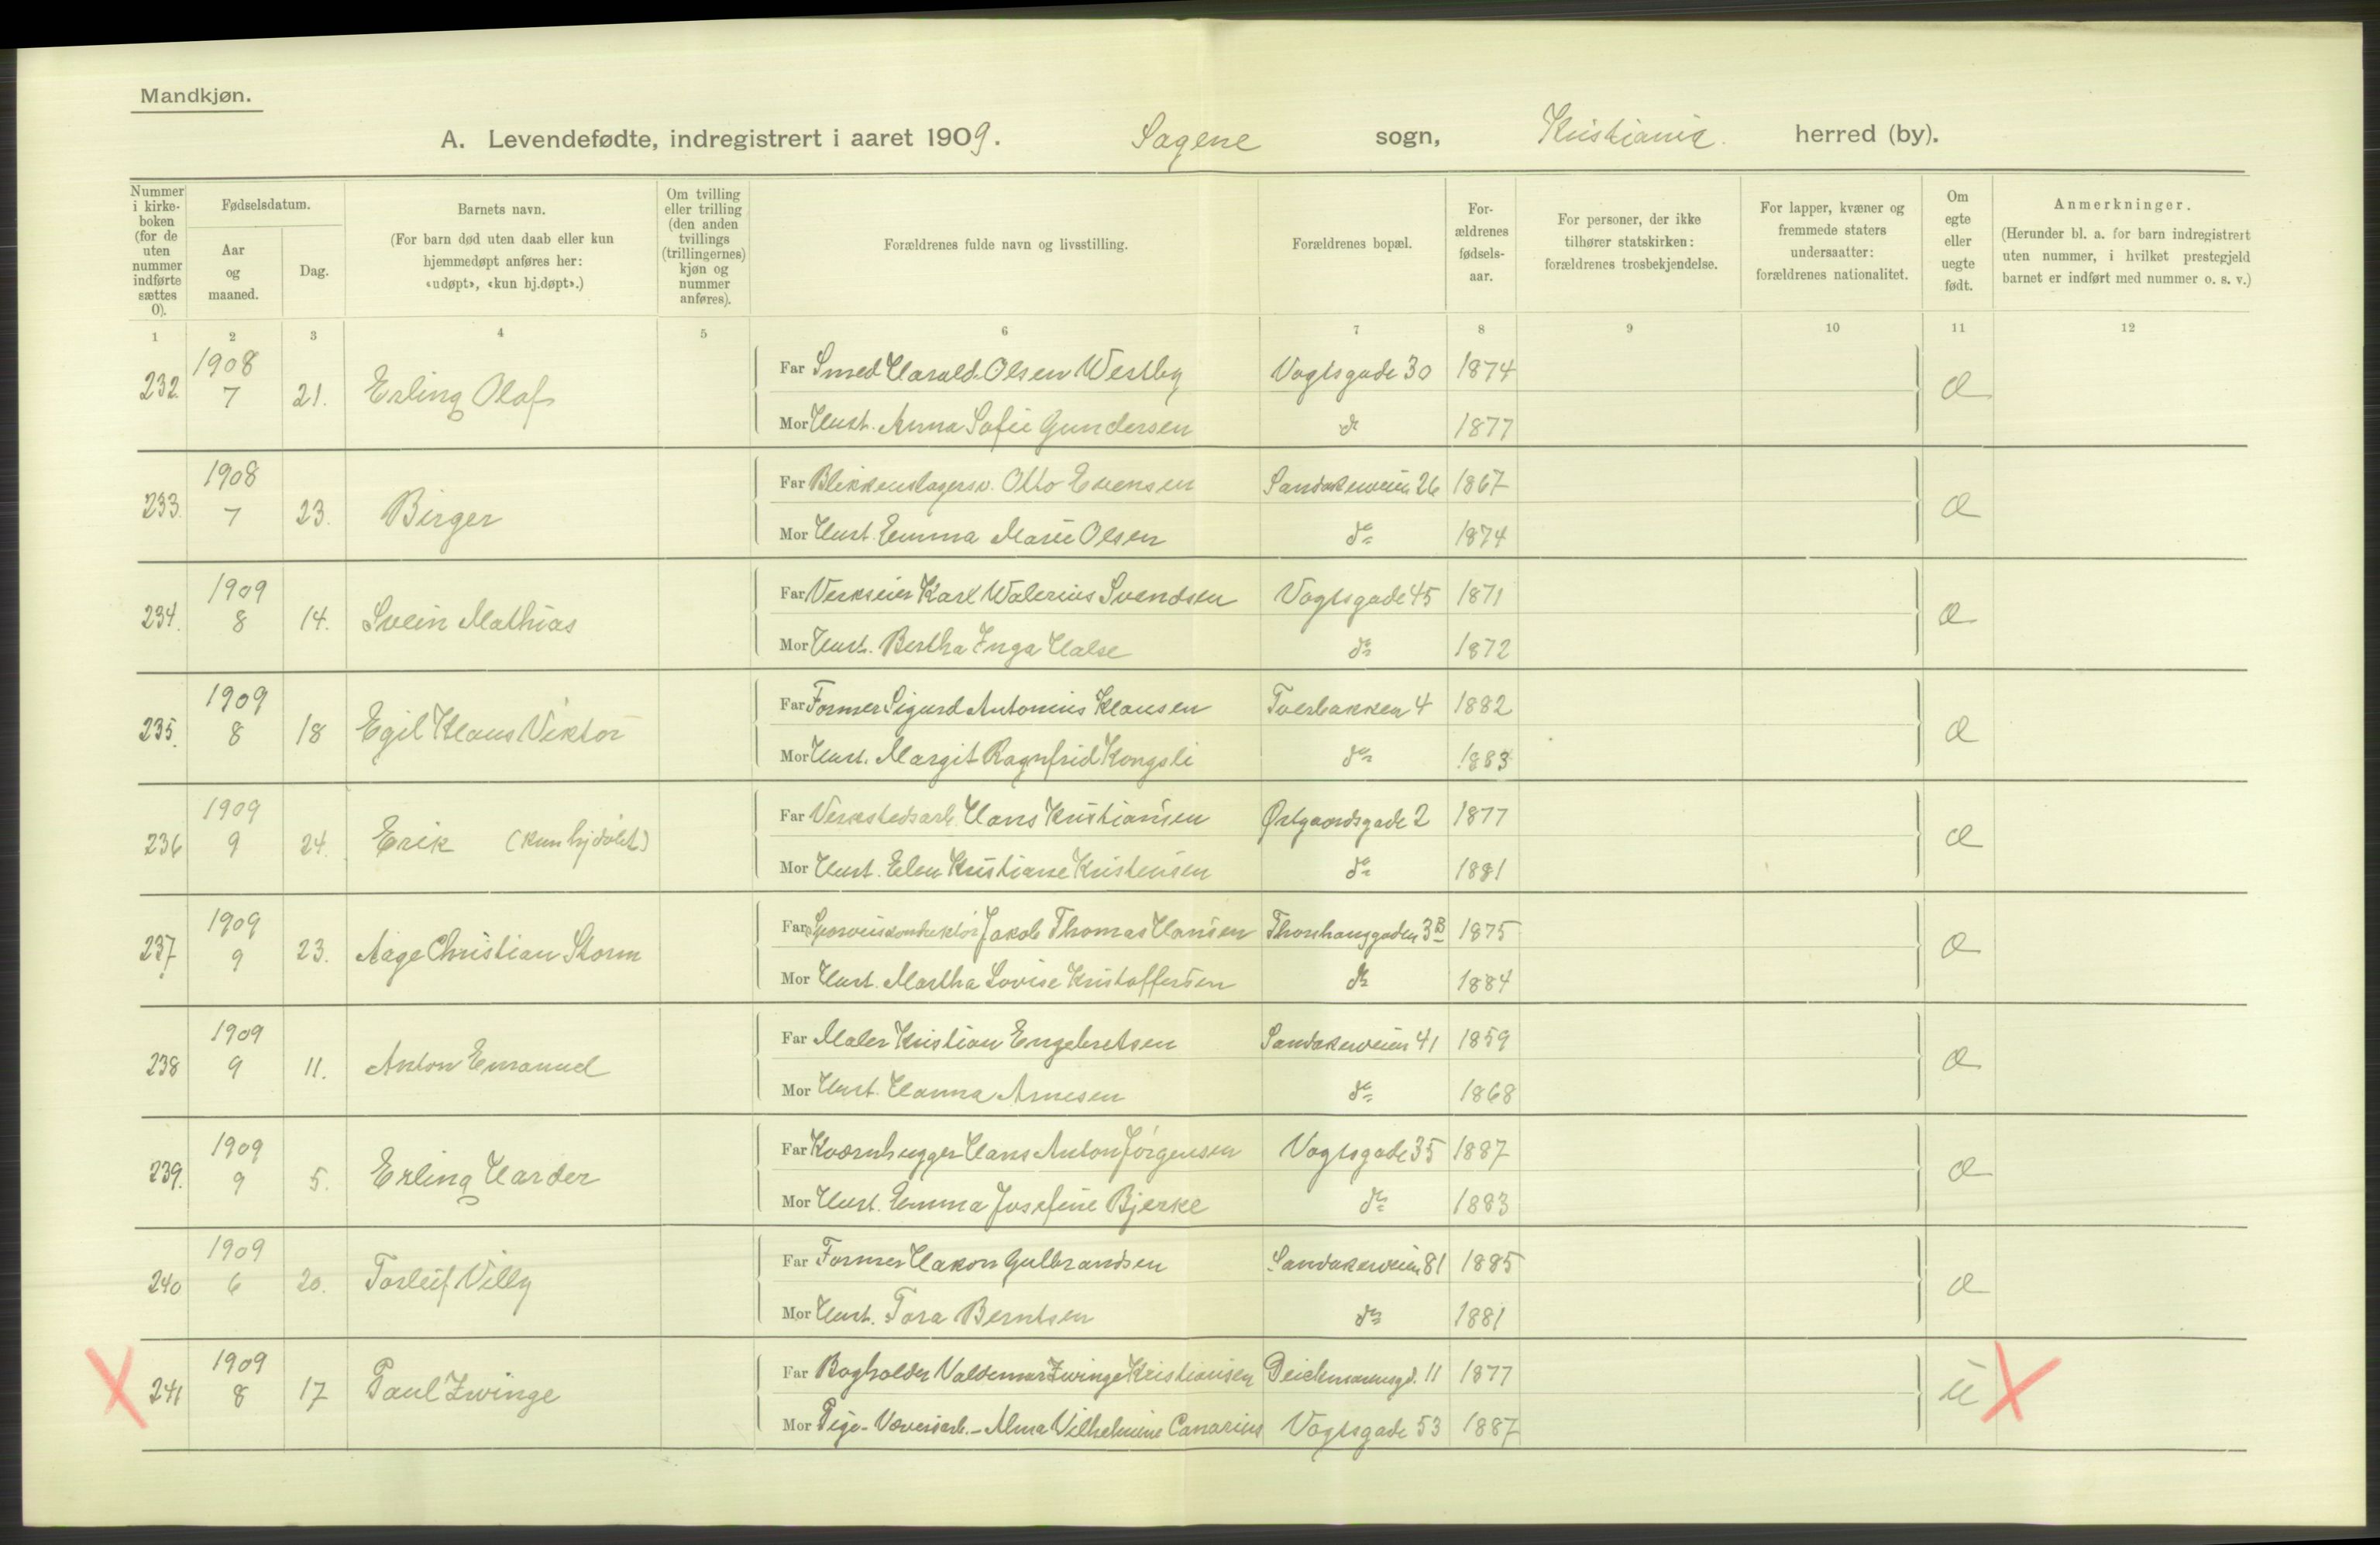 Mandkjøn.
A. Levendefødte, indregistrert i aaret 1909. Sagene sogn, Kristiania. herred (by).
Nummer i kirkeboken (for de uten nummer indførte sættes 0).
Fødselsdatum.
Aar og maaned.
Dag.
Barnets navn.
(For barn død uten daab eller kun hjemmedøpt anføres her: «udøpt», «kun hj.døpt».)
Om tvilling eller trilling (den anden tvillings (trillingernes) kjøn og nummer anføres).
Forældrenes fulde navn og livsstilling.
Forældrenes bopæl.
Forældrenes fødselsaar.
For personer, der ikke tilhører statskirken: forældrenes trosbekjendelse.
For lapper, kvæner og fremmede staters undersaatter: forældrenes nationalitet.
Om egte eller uegte født.
Anmerkninger.
(Herunder bl. a. for barn indregistrert uten nummer, i hvilket prestegjeld barnet er indført med nummer o. s. v.)
1 2 3 4 5 6 7 8 9 10 11 12
232. 1908 7 21. Erling Olaf Far Smed Harald Olsen Westby Vogtsgade 30 1874 Æ
Mor Hust. Anna Sofie Gundersen do 1877
233. 1908 7 23. Birger Far Blikkenslagersv. Otto Evensen Sandakerveien 26 1867 Æ
Mor Hust. Emma Marie Olsen do 1874
234. 1909 8 14. Svein Mathias Far Verkseier Karl Walerius Svendsen Vogtsgade 45 1871 Æ
Mor Hust. Bertha Inga Halse do 1872
235. 1909 8 18 Egil Klaus Viktor Far Former Sigurd Antonius Klausen Tverbakken 4 1882 Æ
Mor Hust. Margit Ragnfrid Kongsli do 1883
236 1909 9 24. Erik (kun hjdøbt) Far Verkstedsarb. Hans Kristiansen Østgaardsgade 2 1877 Æ
Mor Hust. Elen Kristiane Kristensen do 1881
237. 1909 9 23. Aage Christian Storm Far Sporveiskonduktør Jakob Thomas Hansen Thorshauggaden 3B 1875 Æ
Mor Hust. Martha Lovise Kristoffersen do 1884
238 1909 9 11. Anton Emanuel Far Maler Kristian Engebretsen Sandakerveien 41 1859 Æ
Mor Hust. Hanna Arnesen do 1868
239. 1909 9 5. Erling Harder Far Kværnhugger Hans Anton Jørgensen Vogtsgade 35 1887 Æ
Mor Hust. Emma Josefine Bjerke do 1883
240 1909 6 20. Torleif Villy Far Former Hakon Gulbrandsen Sandakerveien 81 1885 Æ
Mor Hust. Tora Berntsen do 1881
241 1909 8 17 Paul Zwinge Far Bogholder Valdemar Zwinge Kristiansen Deichmannsgd. 11 1877 U
Mor Pige - Væveriarb. - Alma Vilhelmine Canarius Vogtsgade 53 1887